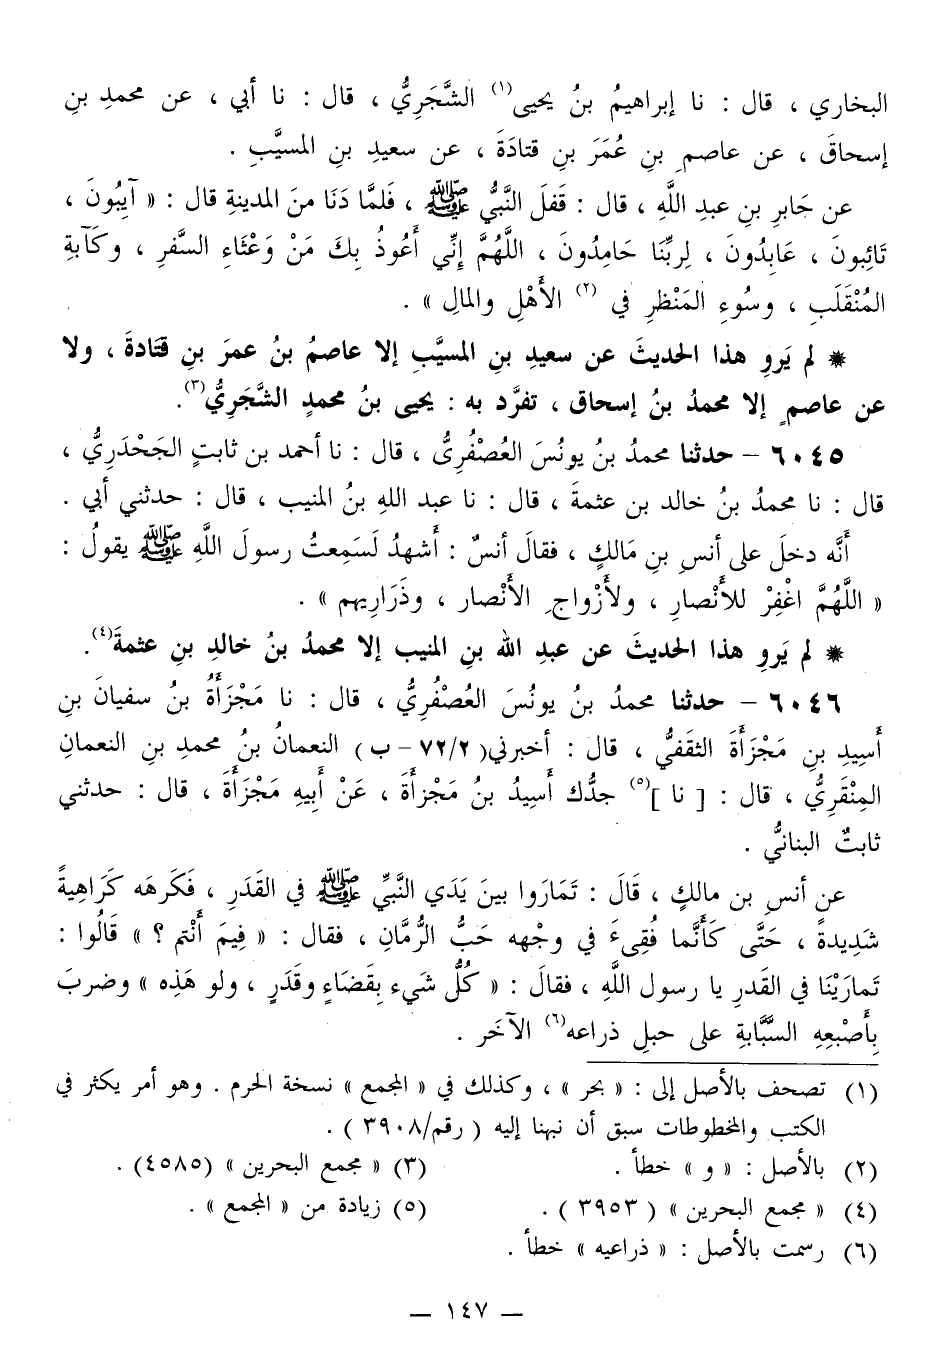 البخاري ، قال : نا إبراهيمُ بنُ يحيى(١) الشَّجَرِيُّ ، قال : نا أبي ، عن محمدِ بنِ
إسحاقَ ، عن عاصمِ بنِ عُمَرَ بنِ قتادَةَ ، عن سعيدِ بنِ المسيَّبِ .
عن جَابرِ بنِ عبدِ اللَّهِ ، قال : قَفلَ النَّبيُّ ﷺ ، فَلمَّا دَنَا منَ المدينةِ قال : « آيِبُونَ ،
تَائِبونَ ، عَابِدُونَ ، لِربِّنَا حَامِدُونَ ، اللَّهُمَّ إنِّي أَعُوذُ بِكَ مَنْ وَعْثَاءِ السَّفرِ ، وكَآبةِ
المُنْقَلَبِ ، وسُوءِ المَنْظرِ في (٢) الأَهْلِ والمالِ » .
* لم يَروِ هذا الحديثَ عن سعيدِ بنِ المسيَّبِ إلا عاصمُ بنُ عمرَ بنِ قتادةَ ، ولا
عن عاصمٍ إلا محمدُ بنُ إسحاق ، تفرَّد به : يحيى بنُ محمدٍ الشَّجَرِيُّ(٣).
٦٠٤٥ – حدثنا محمدُ بنُ يونُسَ العُصْفُرِىُّ ، قال : نا أحمد بن ثابتٍ الجَحْدَرِيُّ ،
قال : نا محمدُ بنُ خالد بن عثمةَ ، قال : نا عبد الله بنُ المنيب ، قال : حدثني أبي .
أَنَّه دخلَ على أنسِ بنِ مَالكٍ ، فقالَ أنسٌ : أشهدُ لَسَمِعتُ رسولَ اللَّهِ ﷺ يقولُ :
« اللَّهُمَّ اغْفِرْ للأَنْصارِ ، ولأَزْواجِ الأَنْصار ، وذَرَارِيهم » .
* لم يَروِ هذا الحديثَ عن عبدِ الله بنِ المنيب إلا محمدُ بنُ خالدِ بنِ عثمةَ(٤).
٦٠٤٦ – حدثنا محمدُ بنُ يونُسَ العُصْفُرِيُّ ، قال : نا مَجْزَأَةُ بنُ سفيانَ بنِ
أَسِيدِ بنِ مَجْزَأَةَ الثقفيُّ ، قال : أخبرني( ٧٢/٢ – ب ) النعمانُ بنُ محمدِ بنِ النعمانِ
المِنْقَرِيُّ ، قال : [ نا ](٥) جدُّك أَسِيدُ بنُ مَجْزأةَ ، عَنْ أَبيِه مَجْزَأَةَ ، قال : حدثني
ثابتٌ البنانيُّ .
عن أنسِ بن مالكٍ ، قَالَ : تَمَارَوا بينَ يَدَي النَّبيِّ ﷺ في القَدَرِ ، فَكَرهَه كَرَاهِيةً
شَدِيدةً ، حَتَّى كَأَنَّما فُقِىءَ في وجْهه حَبُّ الرُّمَّانِ ، فقال : « فِيمَ أَنْتم ؟ » قَالُوا :
تَمارَيْنَا في القَدرِ يا رسول اللَّهِ ، فقالَ : « كُلُّ شَيء بِقَضَاءٍ وقَدَرٍ ، ولو هَذِه » وضربَ
بِأَصْبِعِهِ السَّبَّابةِ على حبلِ ذراعه(٦) الآخَر .
(١) تصحف بالأصل إلى : « بحر » ، وكذلك في « المجمع » نسخة الحرم . وهو أمر يكثر في
الكتب والمخطوطات سبق أن نبهنا إليه ( رقم/٣٩٠٨ ) .
(٢) بالأصل : « و » خطأ . (٣) « مجمع البحرين » (٤٥٨٥) .
(٤) « مجمع البحرين » ( ٣٩٥٣ ) . (٥) زيادة من « المجمع » .
(٦) رسمت بالأصل : « ذراعيه » خطأ .
— ١٤٧ —